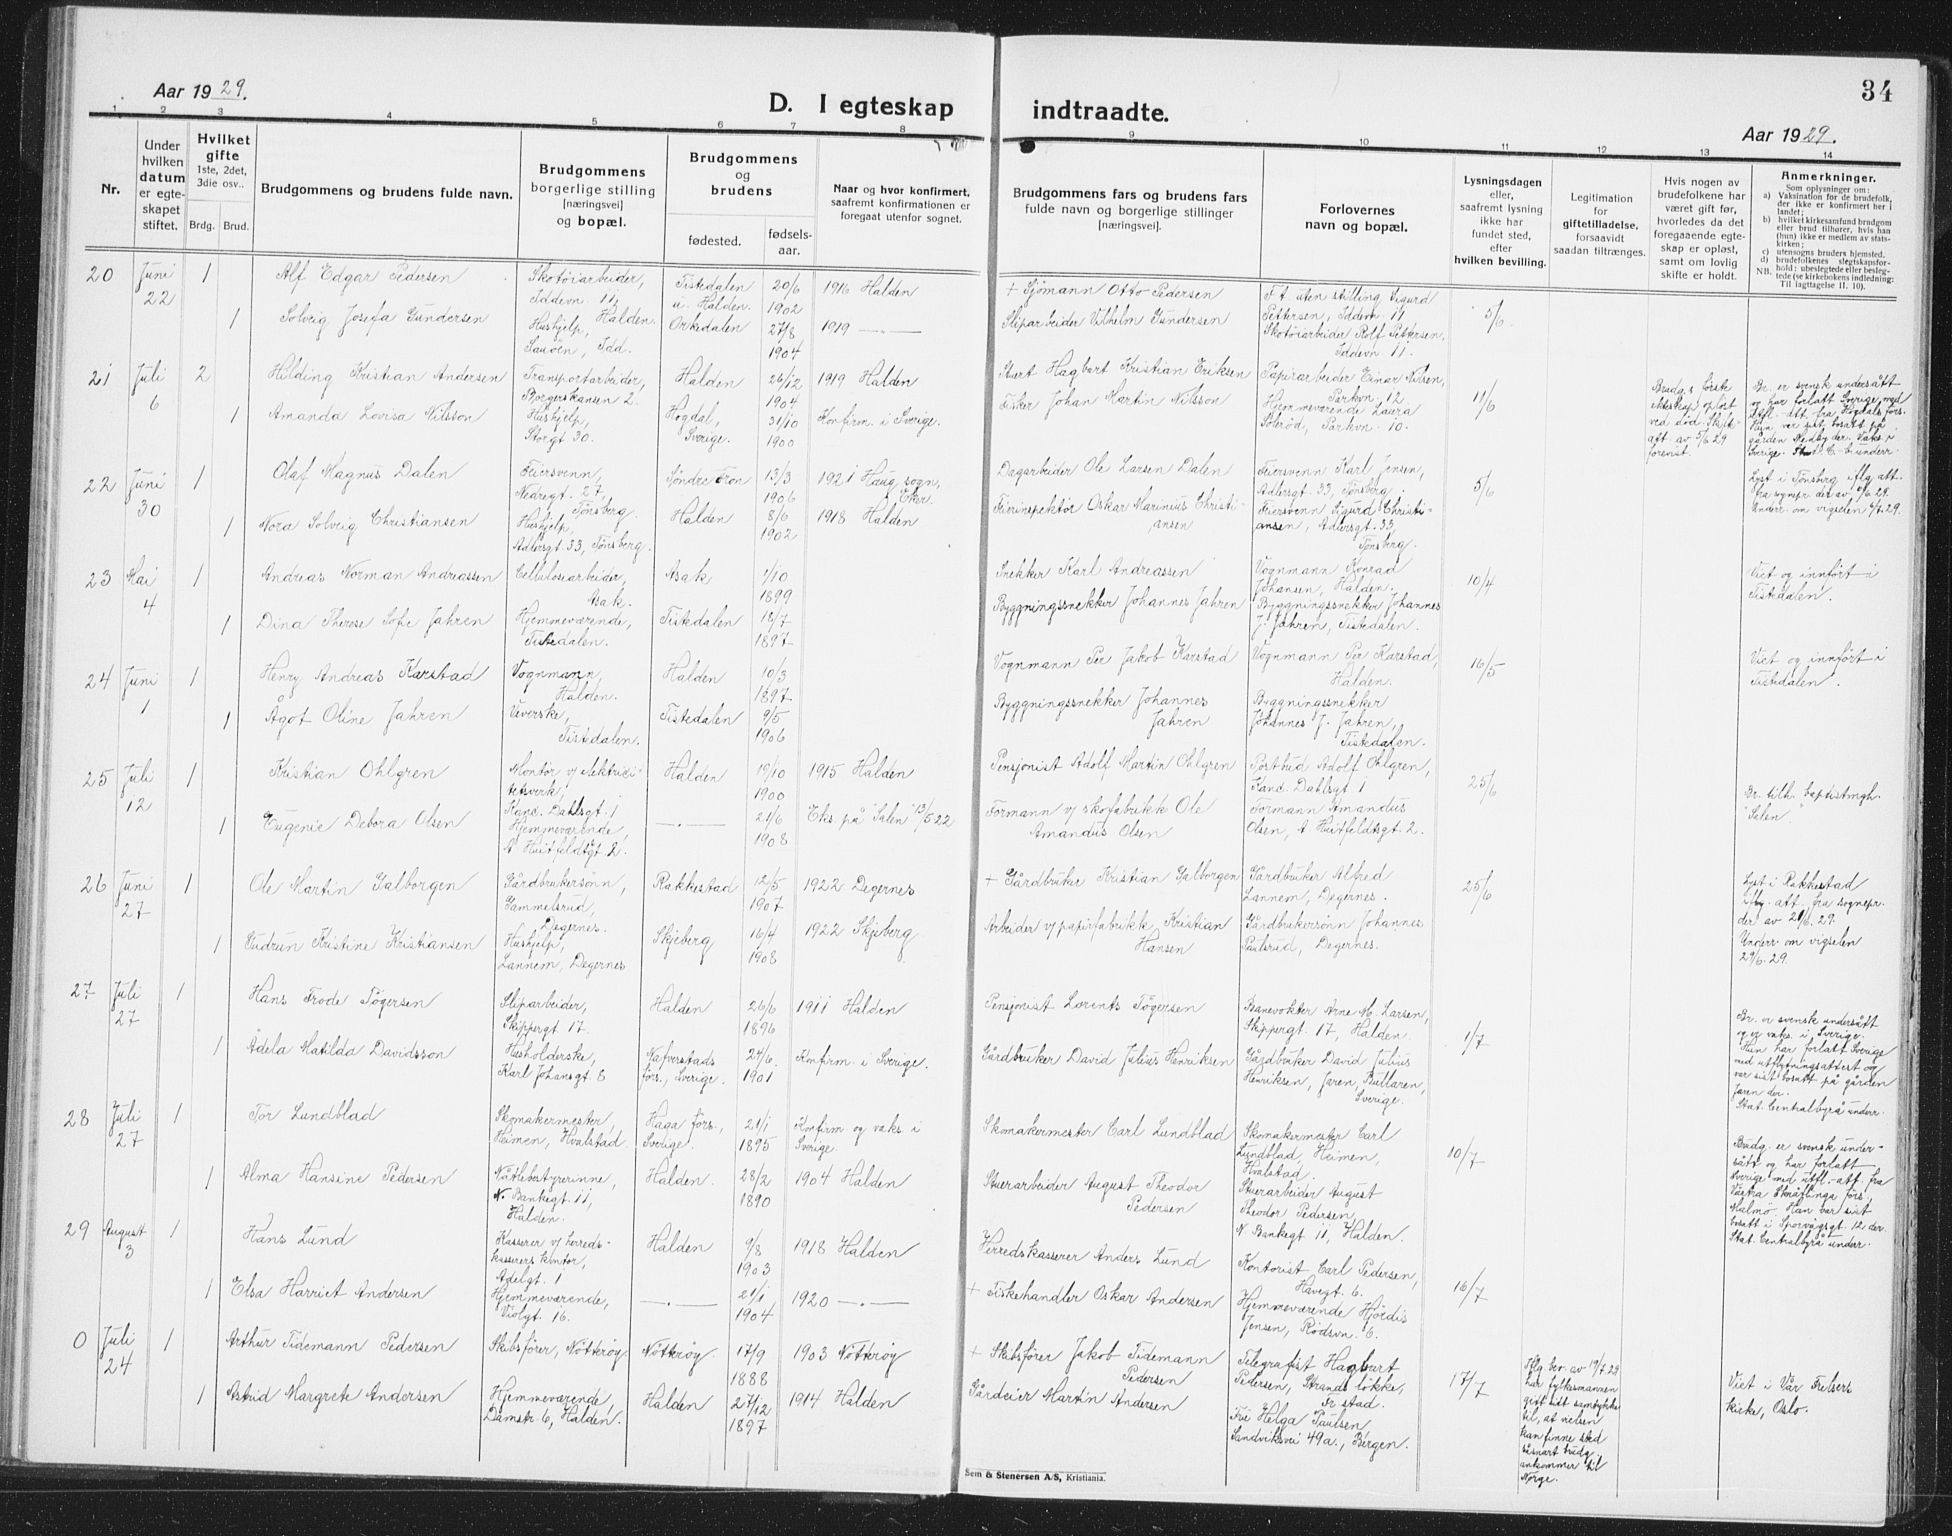 Aar 1929.
D. I egteskap indtraadte.
34
Aar 1929.
1 2 3 4 5 6 7 8 9 10 11 12 13 14
Nr.
Under
hvilken
datum
er egte-
skapet
stiftet.
Hvilket
gifte
1ste, 2det,
3die osv..
Brdg. Brud.
Brudgommens og brudens fulde navn.
Brudgommens
borgerlige stilling
[næringsvei]
og bopæl.
Brudgommens
og
brudens
fødested.
fødsels-
aar.
Naar og hvor konfirmert,
saafremt konfirmationen er
foregaat utenfor sognet.
Brudgommens fars og brudens fars
fulde navn og borgerlige stillinger
[næringsvei].
Forlovernes
navn og bopæl.
Lysningsdagen
eller,
saafremt lysning
ikke har
fundet sted,
efter
hvilken bevilling.
Legitimation
for
giftetilladelse,
forsaavidt
saadan tiltrænges.
Hvis nogen av
brudefolkene har
været gift før,
hvorledes da det
foregaaende egte-
skap er opløst,
samt om lovlig
skifte er holdt.
Anmerkninger.
Som oplysninger om:
a) Vaksination for de brudefolk,
der ikke er konfirmert her i
landet;
b) hvilket kirkesamfund brudgom
eller brud tilhører, hvis han
(hun) ikke er medlem av stats-
kirken;
c) utensogns bruders hjemsted.
d) brudefolkenes slegtskapsfor-
hold: ubeslegtede eller besleg-
tede (se kirkebokens indledning:
NB. Til iagttagelse II. 10).
20 Juni 22
1 Alf Edgar Pedersen
Skotøiarbeider,
Iddevn. 11,
Halden.
Tistedalen
u. Halden.
20/6
1902
1916 Halden
+ Sjømann Otto Pedersen
F. t. uten stilling Sigurd
Pettersen, Iddevn. 11
5/6.
1 Solvig Josefa Gundersen
Hushjelp,
Sauøen, Idd.
Orkedalen
27/8
1904
1919 —„—
Sliparbeider Vilhelm Gundersen
Skotøiarbeider Rolf Pettersen,
Iddevn. 11.
21 Juli 6
2 Hilding Kristian Andersen
Transportarbeider,
Borgerskansen 2.
Halden
26/12
1904
1919 Halden
Stuert Hagbart Kristian Eriksen
Papirarbeider Einar Nilsen,
Parkvn. 12
11/6
Brudg.s første
ekteskap opløst
ved død. Skift-
att. av 5/6 29
forevist.
Br. er svensk undersått
og har forlatt Sverige med
utfl.-att. fra Hogdals førs.
Hun var sist bosatt på
gården Nedby der. Vaks. i
Sverige. Stat. C-b. underr.
1 Amanda Lovisa Nilsson
Hushjelp,
Storgt 30.
Hogdal,
Sverige.
31/10
1900
Konfirm. i Sverige.
Fisker Johan Martin Nilsson
Hjemmeværende Laura
Solerød, Parkvn. 10.
22 Juni 30
1 Olaf Magnus Dalen
Feiersvenn,
Nedregt. 27,
Tønsberg
Søndre Fron
13/3
1906
1921 Haug sogn,
Eker.
Dagarbeider Ole Larsen Dalen
Feiersvenn Karl Jensen,
Adlersgt. 33, Tønsberg
5/6
Lyst i Tønsberg iflg. att.
fra sognepr. der av 9/6 29.
Underr. om vigselen 6/7.29.
1 Nora Solvrig Christiansen
Hushjelp,
Adlersgt 33, Tønsberg.
Halden
8/6
1902
1918 Halden
Feirinspektør Oskar Marinius Christi-
ansen
Feiersvenn Sigurd Christi-
ansen, Adlersgt. 33,
Tønsberg.
23 Mai 4
1 Andreas Norman Andreassen
Cellulosearbeider,
Asak.
Asak
1/10
1899
Snekker Karl Andreassen
Vognmann Konrad
Johansen, Halden.
10/4
Viet og innført i
Tistedalen.
1 Dina Therese Sofie Jahren
Hjemmeværende,
Tistedalen.
Tistedalen
18/7
1897
Byggningssnekker Johannes Jahren
Byggningssnekker Johannes
J. Jahren, Tistedalen.
24 Juni 1
1 Henry Andreas Karstad
Vognmann,
Halden.
Halden
10/3
1897
Vognmann Per Jakob Karstad
Vognmann Per Karstad,
Halden.
16/5
Viet og innført i
Tistedalen.
1 Ågot Oline Jahren
Veverske,
Tistedalen.
Tistedalen
9/5
1906
Byggningssnekker Johannes
Jahren
Byggningssnekker
Johannes J. Jahren,
Tistedalen.
25 Juli 12
1 Kristian Ohlgren
Montør v/ elektrisi-
tetsverk,
Kanc. Dahlsgt. 1
Halden
19/10
1900
1915 Halden
Pensjonist Adolf Martin Ohlgren
Postbud Adolf Ohlgren,
Kanc. Dahlsgt 1
25/6
Br. tilh. baptistmgh.
"Salen".
1 Eugenie Debora Olsen
Hjemmeværende,
A Huitfeldtsgt 2.
—„—
21/6
1908
Eks. på "Salen" 13/5 22
Formann v/ skofabrikk Ole
Amandus Olsen
Formann Amandus
Olsen, A Huitfeldtsgt. 2.
26 Juni 27
1 Ole Martin Galborgen
Gårdbrukersønn,
Gammelsrud,
Degernes.
Rakkestad
12/5
1907
1922 Degernes
+ Gårdbruker Kristian Galborgen
Gårdbruker Alfred
Lannem, Degernes.
25/6
Lyst i Rakkestad
iflg. att. fra sognepr.
der av 26/6. 29.
Underr. om vigselen
29/6. 29.
1 Gudrun Kristine Kristiansen
Hushjelp,
Lannem, Degernes
Skjeberg
16/4
1908
1922 Skjeberg
Arbeider v/ papirfabrikk Kristian
Hansen
Gårdbrukersønn Johannes
Paulsrud, Degernes.
27 Juli 27
1 Hans Frode Tøgersen
Sliparbeider,
Skippergt 17.
Halden
26/6
1896
1911 Halden
Pensjonist Lorents Tøgersen
Banevokter Arne M. Larsen,
Skippergt. 17, Halden.
1/7
Br. er svensk undersått
og er vaks. i Sverige.
Hun har forlatt Sverige
med utflytningsattest og
var sist bosatt på gården
Jaren der.
Stat. Centralbyrå underr.
1 Adela Matilda Davidsson
Husholderske,
Karl Johansgt 8
Nafverstads
førs., Sverige.
24/6
1901
Konfirm. i Sverige.
Gårdbruker David Julius Henriksen
Gårdbruker David Julius
Henriksen, Jaren, Bullaren,
Sverige.
28 Juli 27
1 Tor Lundblad
Skomakermester,
Heimen, Hvalstad.
Haga førs.,
Sverige.
21/1
1895
Konfirm og vaks. i
Sverige.
Skomakermester Carl Lundblad
Skomakermester Carl
Lundblad, Heimen,
Hvalstad.
10/7
Brudg. er svensk under-
sått og har forlatt
Sverige med utfl.-att. fra
Västra Skräflinge førs,
Malmø. Han var sist
bosatt i Sporvägsgt. 12 der.
Stat. Centralbyrå underr.
1 Alma Hansine Pedersen
Nåtlebestyrerinne,
N. Bankegt. 11,
Halden.
Halden.
28/2
1890
1904 Halden
Stuerarbeider August Theodor
Pedersen
Stuerarbeider August
Theodor Pedersen,
N. Bankegt 11, Halden.
29 August 3
1 Hans Lund
Kasserer v/ herreds-
kasserers kontor,
Adelgt. 1
Halden
9/8
1903
1918 Halden
Herredskasserer Anders Lund
Kontorist Carl Pedersen,
Havegt. 6.
16/7
1 Elsa Harriet Andersen
Hjemmeværende,
Violgt. 16.
—„—
21/1
1904
1920 —„—
+ Fiskehandler Oskar Andersen
Hjemmeværende Hjørdis
Jensen, Rødsvn. 6.
0 Juli 24
1 Arthur Tidemann Pedersen
Skibsfører, Nøtterøy
Nøtterøy.
17/9
1888
1903 Nøtterøy
+ Skibsfører Jakob Tidemann
Pedersen
Telegrafist Hagbart
Pedersen, Strands løkke,
Fr.stad.
17/7
Iflg. bev. av 19/7 29
har fylkesmannen
gitt sitt samtykke
til, at vielsen
kan finne sted
såsnart brudg.
ankommer til
Norge.
Viet i Vår Frelsers
kirke, Oslo.
1 Astrid Margrete Andersen
Hjemmeværende,
Damstr. 6, Halden.
Halden
27/12
1897
1914 Halden
Gårdeier Martin Andersen
Frk Helga Paulsen
Sandviksvei 49a., Bergen.
Sem & Stenersen A/S, Kristiania.